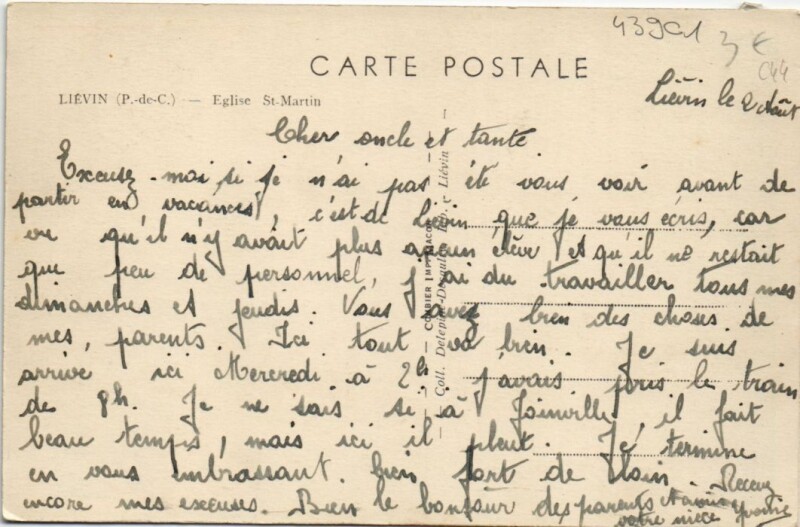 43901
3€
C44
CARTE POSTALE
LIÉVIN (P.-de-C.) — Eglise St-Martin
Liévin le 2 Août
Cher oncle et tante
Excusez-moi si je n'ai pas été vous voir avant de
partir en vacances, c'est de Liévin que je vous écris, car
vu qu'il n'y avait plus aucun élève et qu'il ne restait
que peu de personnel, j'ai du travailler tous mes
dimanches et jeudis. Vous avez bien des choses de
mes parents. Ici tout va bien. Je suis
arrive ici Mercredi à 2h. j'avais pris le train
de 8h. Je ne sais si à Joinville, il fait
beau temps, mais ici il pleut. Je termine
en vous embrassant bien fort de loin. Recevez
encore mes excuses. Bien le bonjour des parents
votre nièce Yvonne
COMBIER IMP. MACON
Coll. Delépine, Liévin